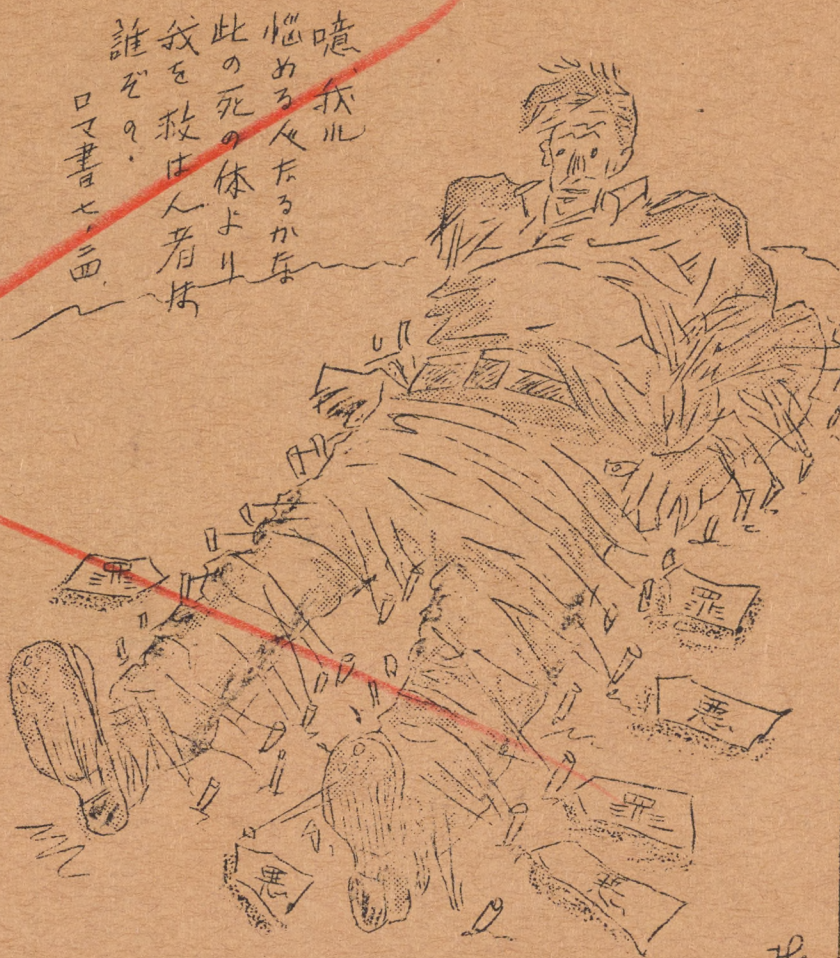 噫、我れ
悩める人なるかな
此の死の体より
我を救はん者は
誰ぞの.
ロマ書七.二四.
罪
罪
悪
罪
悪
悪